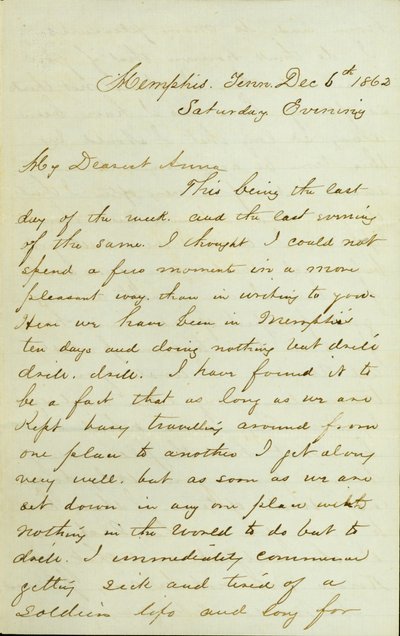 Memphis. Tenn. Dec 6th 1862
Saturday Evening
My Dearest Anna
This being the last
day of the week. and the last evening
of the same. I thought I could not
spend a few moments in a more
pleasant way. than in writing to you.
Here we have been in Memphis
ten days and doing nothing but drill
drill. drill. I have found it to
be a fact that as long as we are
Kept busy travelling around from
one place to another I get along
very well. but as soon as we are
set down in any one place with
nothing in the World to do but to
drill. I immediately commence
getting sick and tired of a
soldiers life and long for